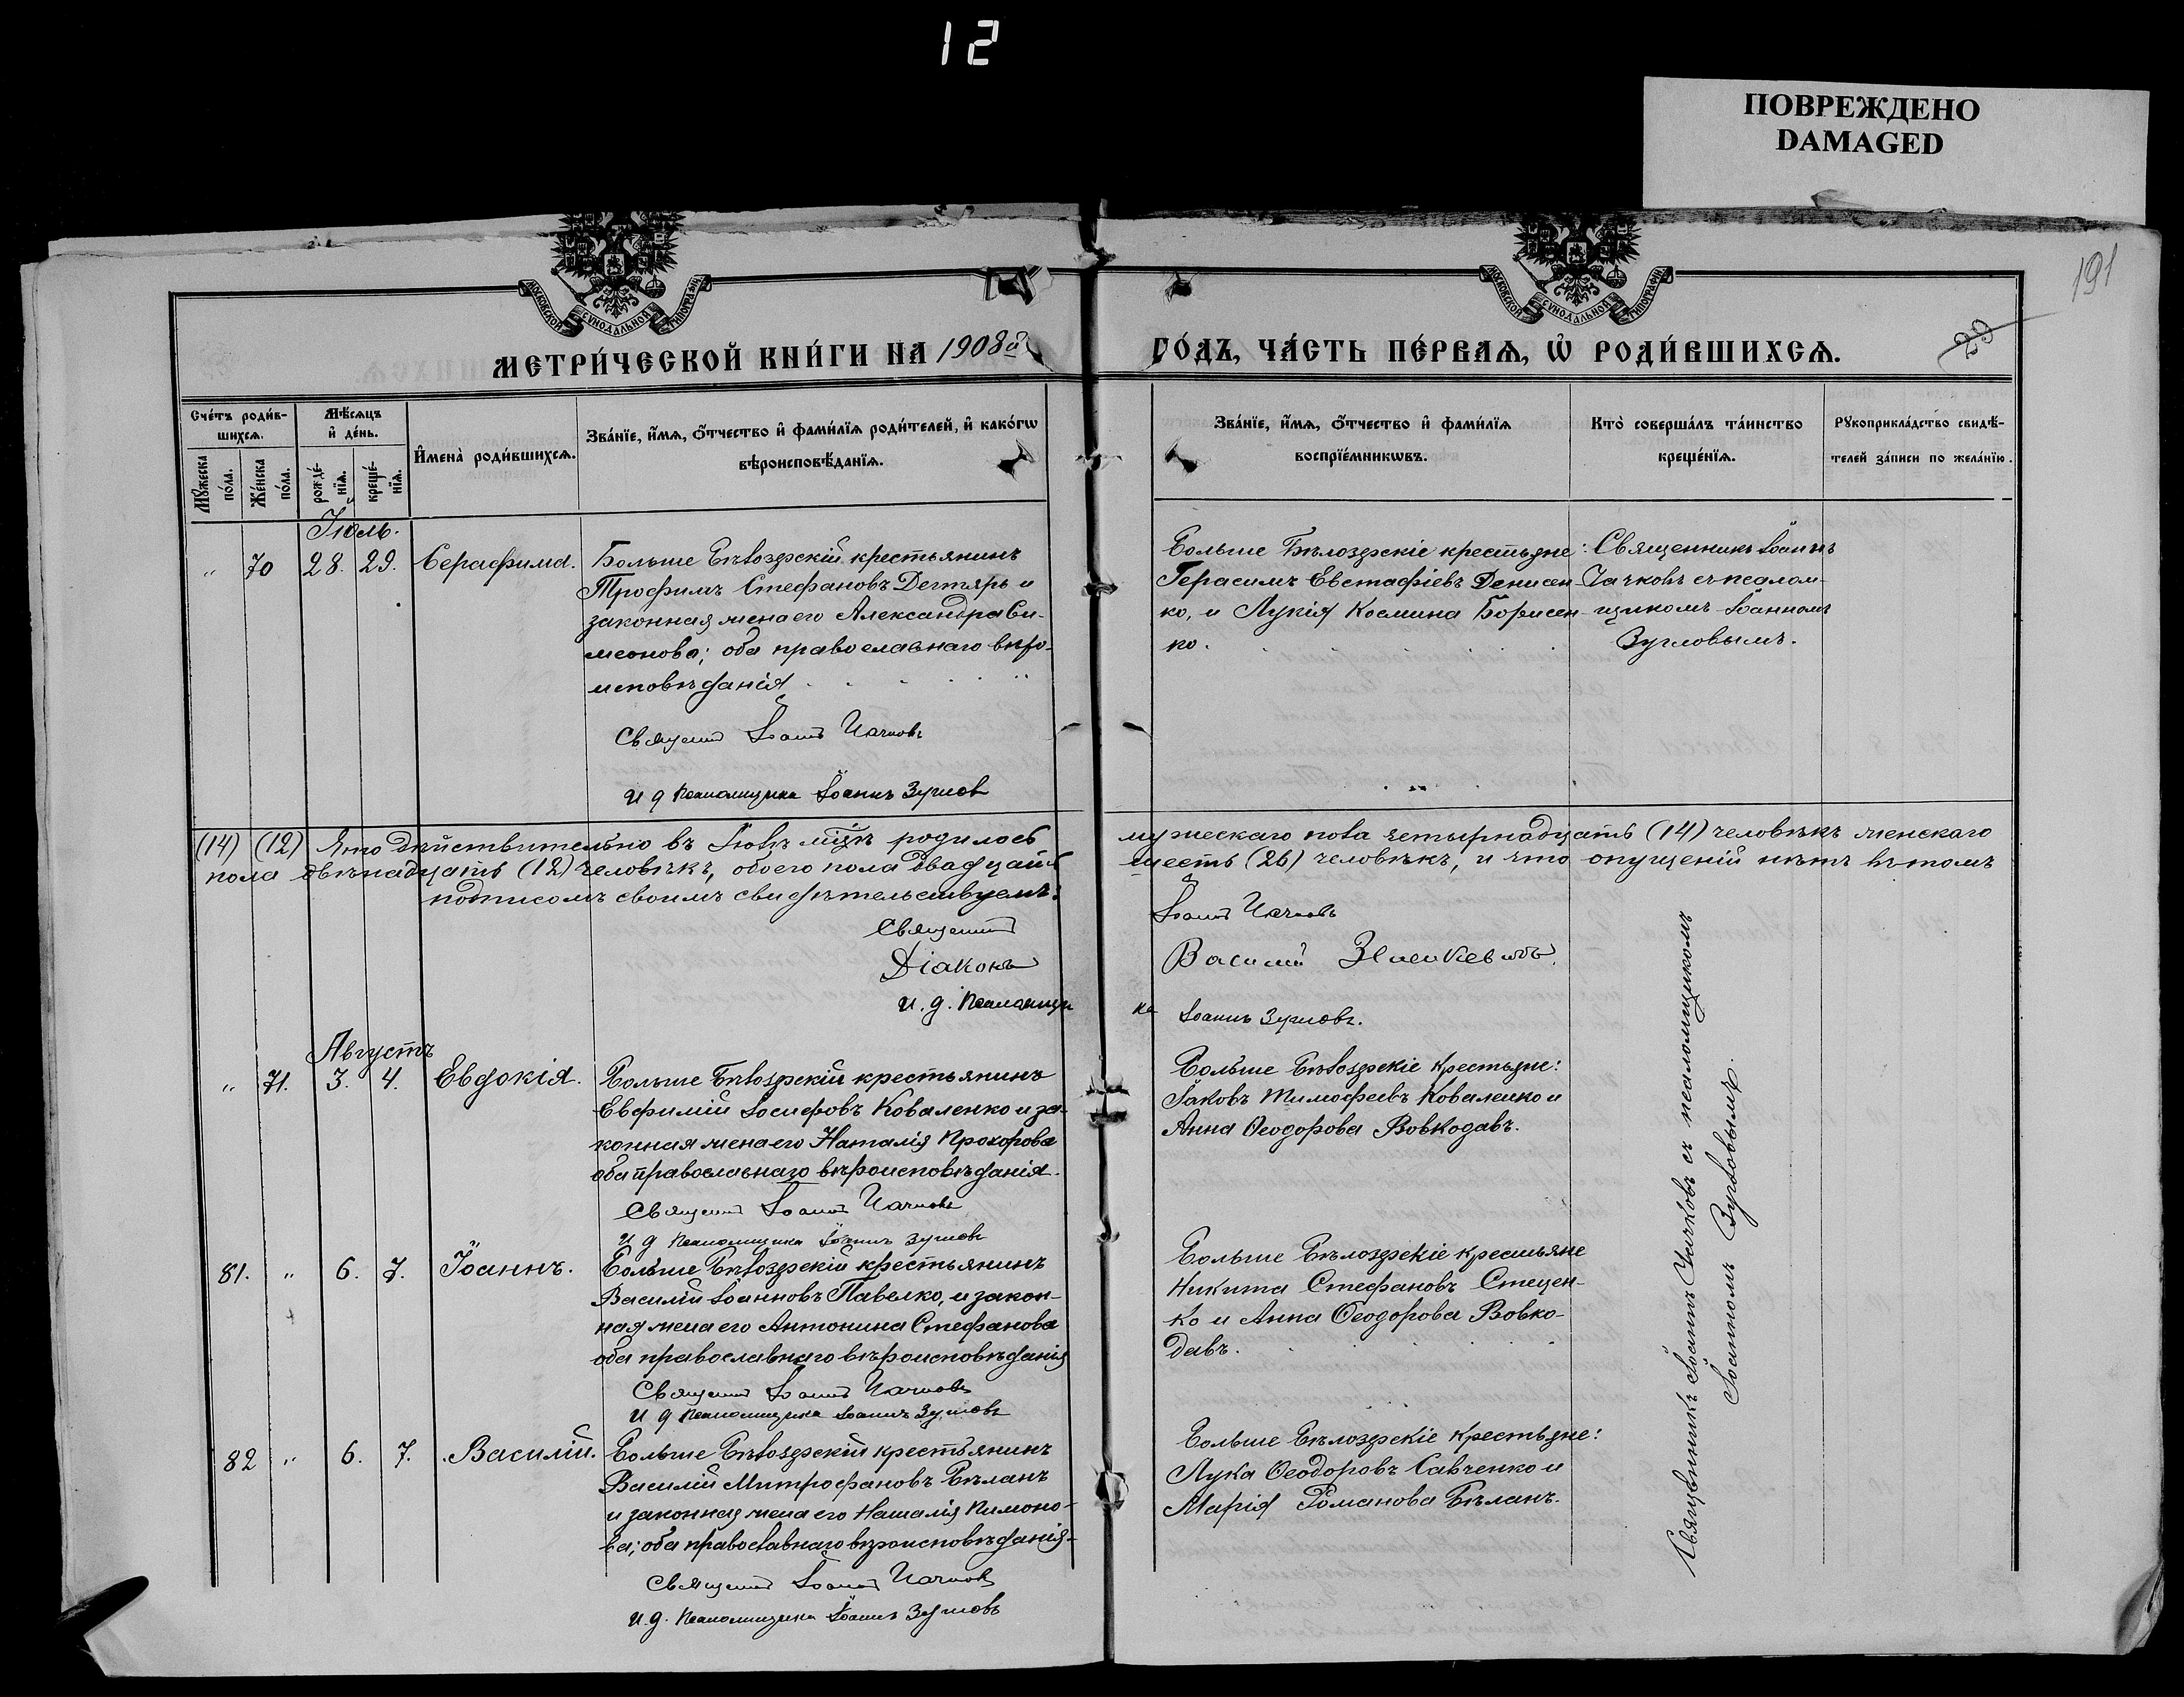 12
ПОВРЕЖДЕНО
DAMAGED
191
МОСКОВСКОЙ СѴНОДАЛЬНОЙ ТИПОГРАФІИ
МОСКОВСКОЙ СѴНОДАЛЬНОЙ ТИПОГРАФІИ
МЕТРИ́ЧЕСКОЙ КНИ́ГИ НА 1908й
ГО́ДЪ, ЧА́СТЬ ПЕ́РВАЯ, Ѡ҆ РОДИ́ВШИХСЯ.
Сче́тъ роди́в-
шихсѧ.
Мꙋ́жеска по́ла.
Же́нска по́ла.
Мѣ́сяцъ
и҆ де́нь.
рожде́-
нїѧ.
креще́-
нїѧ.
И҆мена̀ роди́вшихсѧ.
Зва́нїе, и҆́мѧ, ѻ҆́тчество и҆ фами́лїѧ роди́телей, и҆ како́гѡ
вѣроисповѣ́данїѧ.
Зва́нїе, и҆́мѧ, ѻ҆́тчество и҆ фами́лїѧ
воспрїе́мникѡвъ.
Кто̀ соверша́лъ та́инство
креще́нїѧ.
Рꙋкоприкла́дство свидѣ́-
телей за́писи по жела́нїю.
Іюль.
„ 70 28. 29. Серафима.
Больше Бѣлозерскій крестьянинъ
Трофимъ Стефановъ Дегтярь и
законная жена его Александра Си-
меонова; оба православнаго вѣро-
исповѣданія
Священникъ Іоаннъ Чачковъ
И д псаломщика Іоаннъ Зугловъ
Больше Бѣлозерскіе крестьяне:
Герасимъ Евстафіевъ Денисен-
ко, и Лукія Космина Борисен-
ко.
Священникъ Іоаннъ
Чачковъ съ псалом-
щикомъ Іоанномъ
Зугловымъ.
(14) (12) Что дѣйствительно въ Іюлѣ мцѣ родилось мужескаго пола четырнадцать (14) человѣкъ женскаго
пола двѣнадцать (12) человѣкъ, обоего пола двадцать шесть (26) человѣкъ, и что опущеній нѣтъ въ томъ
подписомъ своимъ свидѣтельствуемъ:
Священникъ Іоаннъ Чачковъ
Діаконъ Василій
И. д. Псаломщика Іоаннъ Зугловъ.
Августъ
„ 71. 3. 4. Евдокія.
Больше Бѣлозерскій крестьянинъ
Евфимій Іосифовъ Коваленко и за-
конная жена его Наталія Прохорова
оба православнаго вѣроисповѣданія.
Священникъ Іоаннъ Чачковъ
И д псаломщика Іоаннъ Зугловъ
Больше Бѣлозерскіе крестьяне:
Іаковъ Тимофеевъ Коваленко и
Анна Ѳеодорова Вовкодавъ.
81. „ 6. 7. Іоаннъ.
Больше Бѣлозерскій крестьянинъ
Василій Іоанновъ Павелко, и закон-
ная жена его Антонина Стефанова
оба православнаго вѣроисповѣданія
Священникъ Іоаннъ Чачковъ
И д псаломщика Іоаннъ Зугловъ
Больше Бѣлозерскіе крестьяне
Никита Стефановъ Стецен-
ко и Анна Ѳеодорова Вовко-
давъ.
82 „ 6. 7. Василій.
Больше Бѣлозерскій крестьянинъ
Василій Митрофановъ Бѣланъ
и законная жена его Наталія Пимоно-
ва; оба православнаго вѣроисповѣданія-
Священникъ Іоаннъ Чачковъ
И. д. псаломщика Іоаннъ Зугловъ
Больше Бѣлозерскіе крестьяне:
Лука Ѳеодоровъ Савченко и
Марія Романова Бѣланъ.
Священникъ Іоаннъ Чачковъ съ псаломщикомъ
Іоанномъ Зугловымъ.